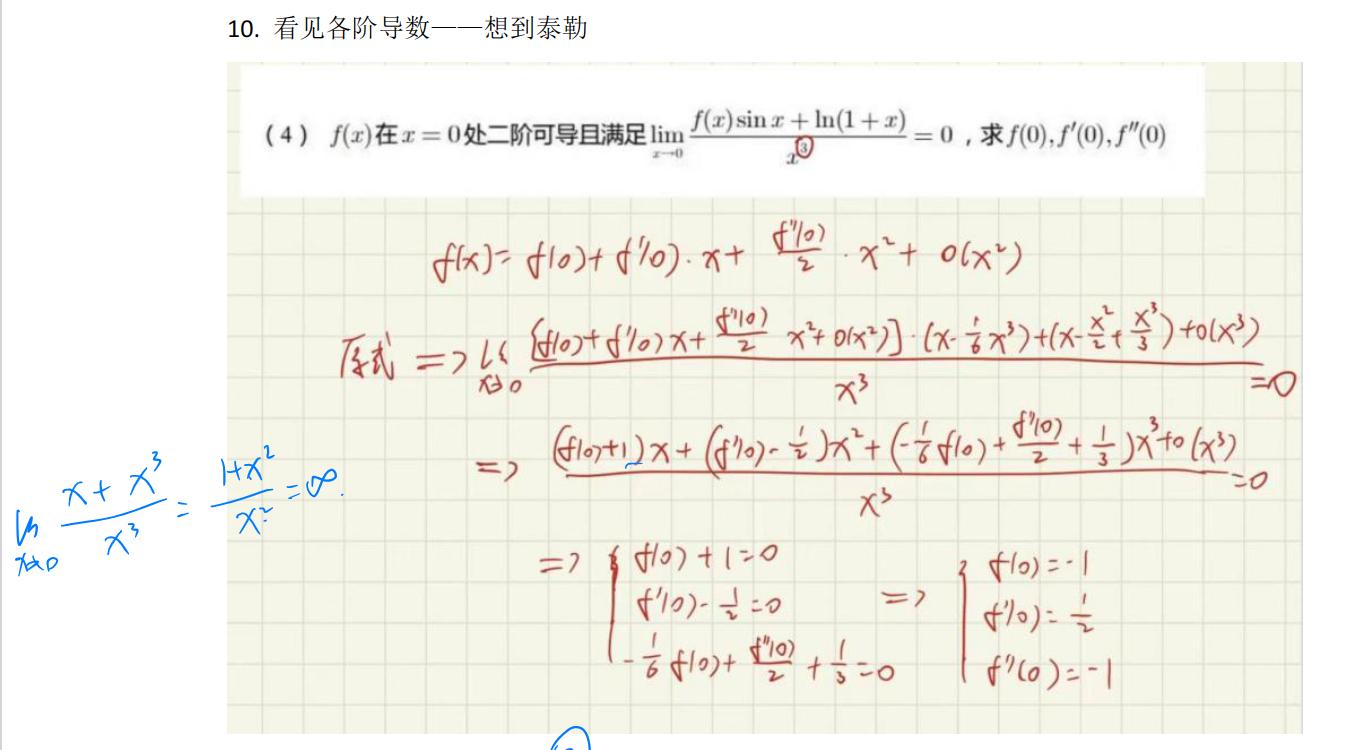 10. 看见各阶导数——想到泰勒
（4） f(x)在x = 0处二阶可导且满足lim_{x→0} (f(x) sin x + ln(1 + x))/x^3 = 0 ，求f(0), f'(0), f''(0)
f(x) = f(0) + f'(0)·x + f''(0)/2 · x² + o(x²)
原式 => lim_{x→0} ([f(0) + f'(0)x + f''(0)/2 x² + o(x²)]·(x - 1/6 x³) + (x - x²/2 + x³/3) + o(x³))/x³ = 0
=> ((f(0)+1)x + (f'(0) - 1/2)x² + (-1/6 f(0) + f''(0)/2 + 1/3)x³ + o(x³))/x³ = 0
lim_{x→0} (x + x³)/x³ = (1+x²)/x² = ∞.
=> { f(0) + 1 = 0 => { f(0) = -1
f'(0) - 1/2 = 0 f'(0) = 1/2
-1/6 f(0) + f''(0)/2 + 1/3 = 0 f''(0) = -1